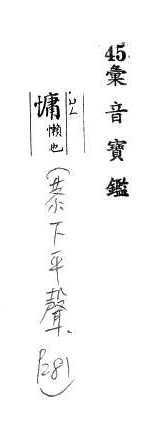 45.彙音寶鑑
慵 懶也
(恭下平聲、P281)